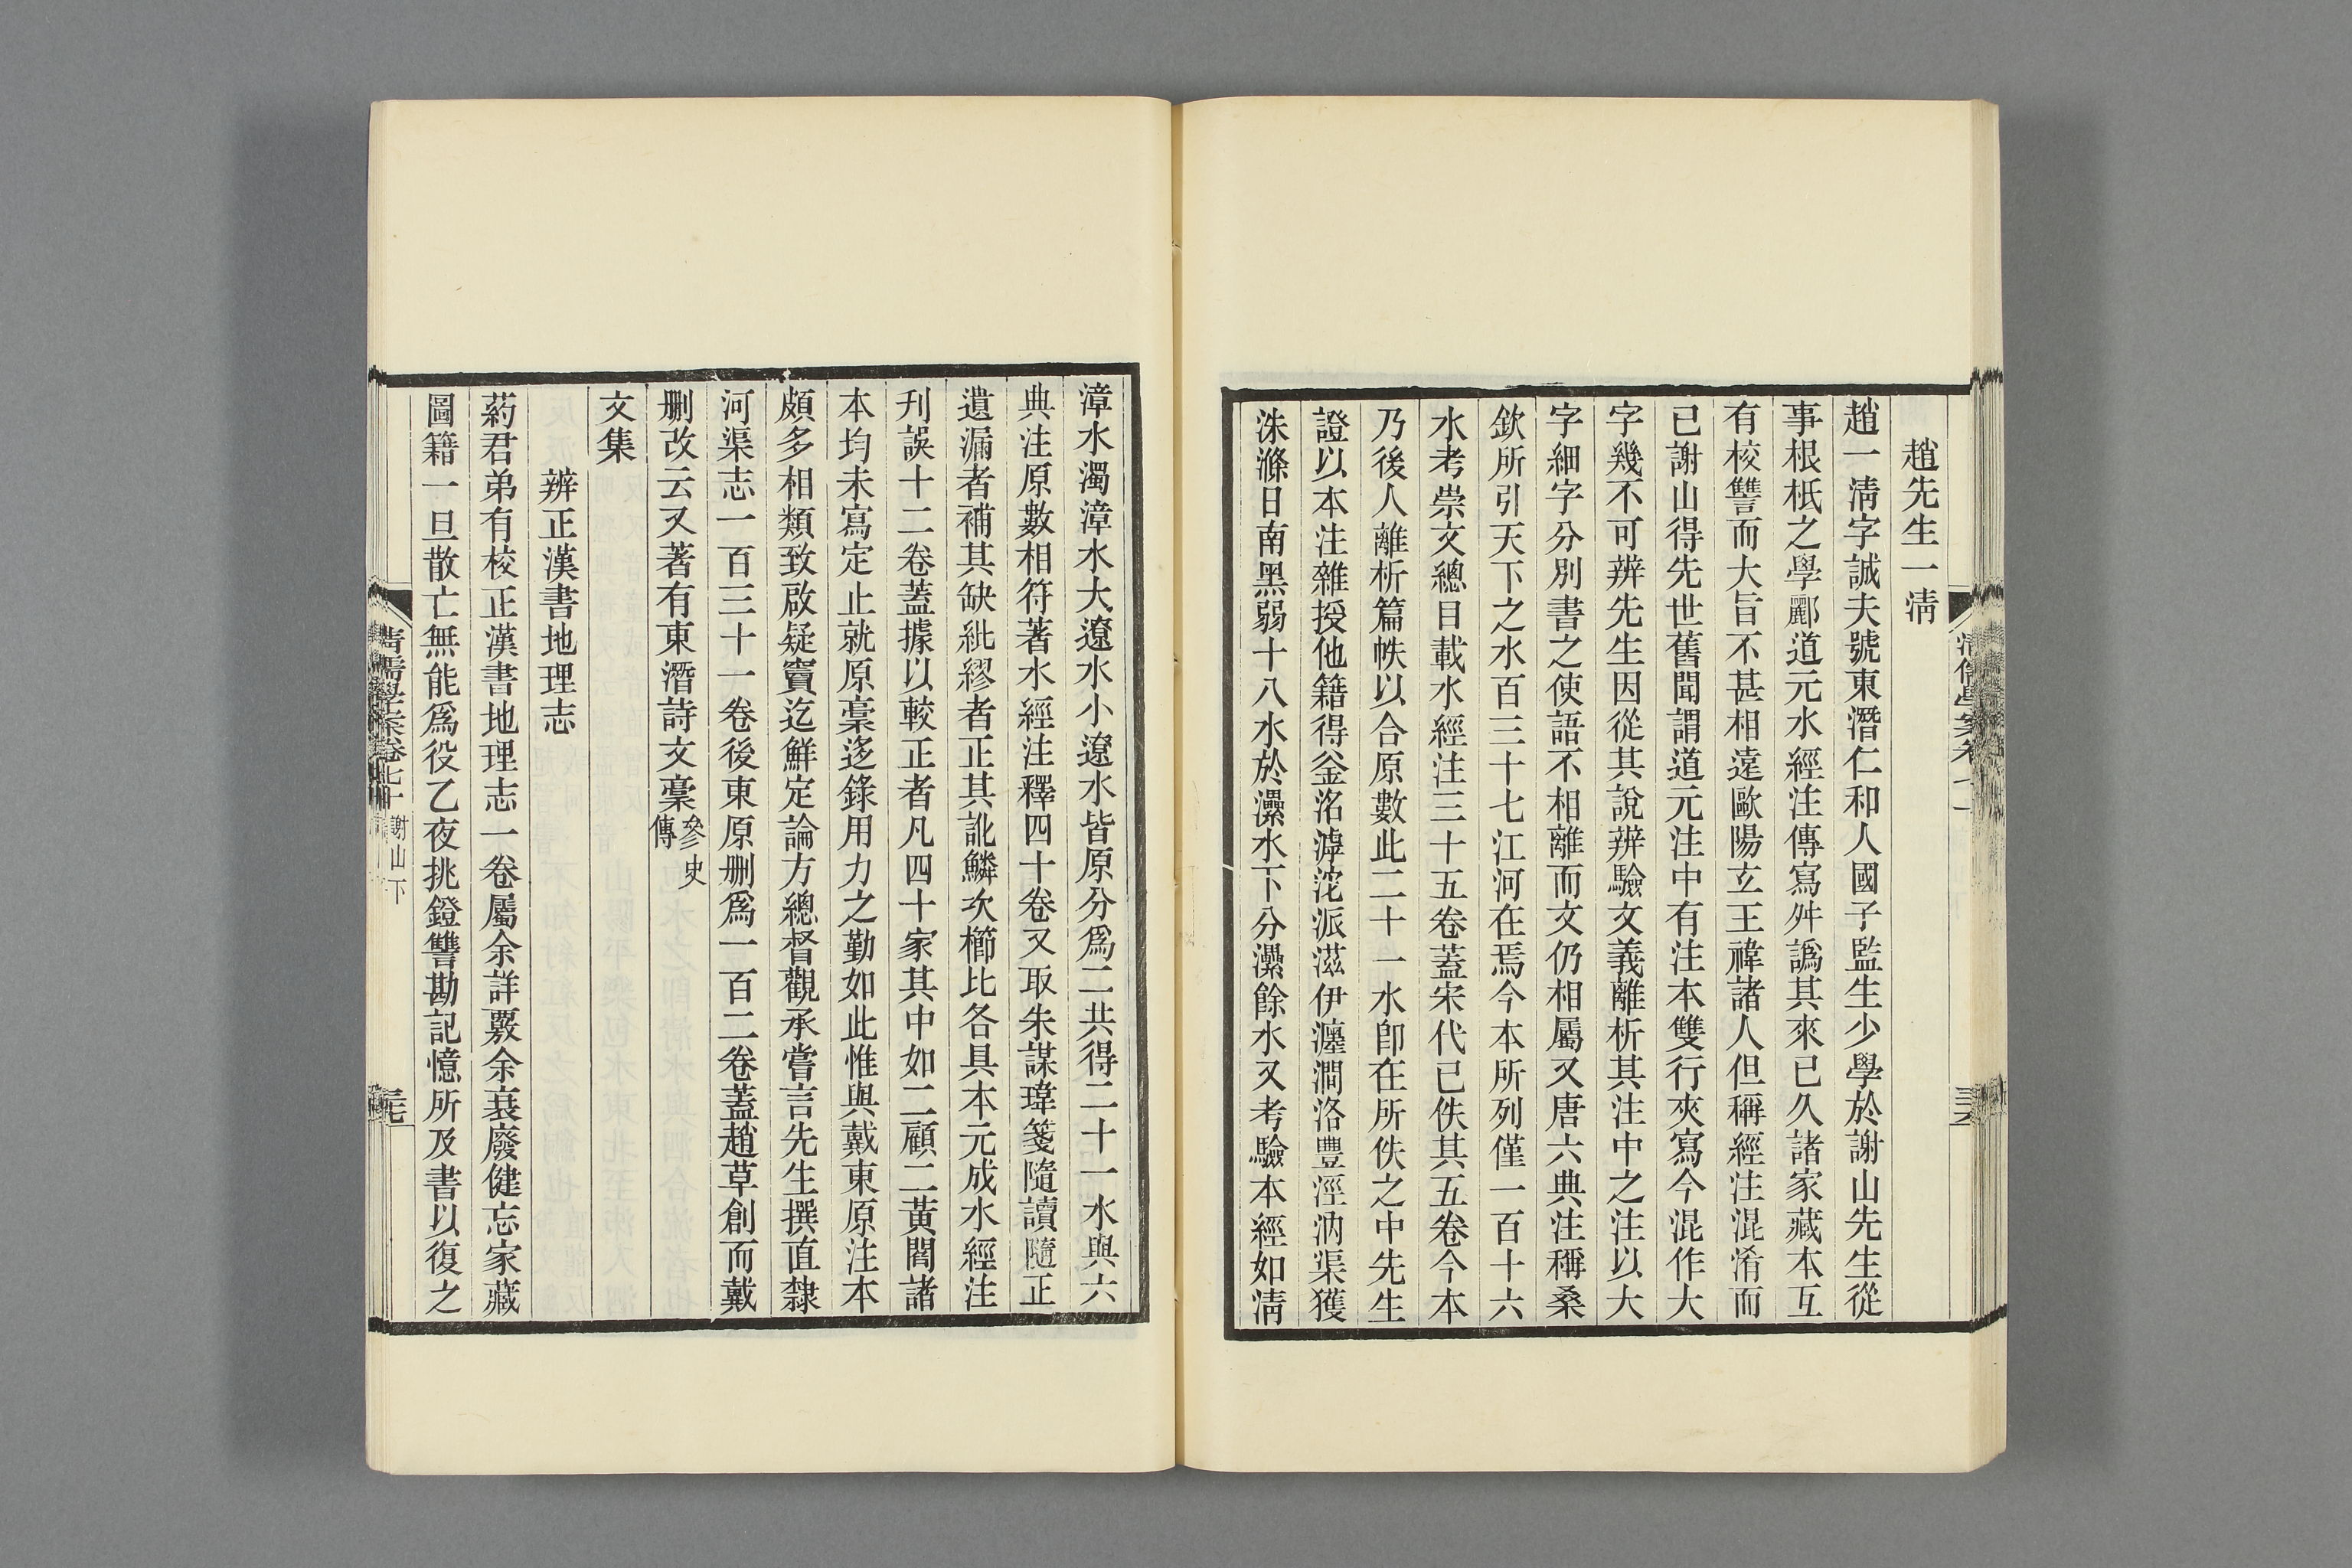 趙先生一淸
趙一淸字誠夫號東潛仁和人國子監生少學於謝山先生從
事根柢之學酈道元水經注傳寫舛譌其來已久諸家藏本互
有校讐而大旨不甚相遠歐陽玄王禕諸人但稱經注混淆而
已謝山得先世舊聞謂道元注中有注本雙行夾寫今混作大
字幾不可辨先生因從其說辨驗文義離析其注中之注以大
字細字分別書之使語不相離而文仍相屬又唐六典注稱桑
欽所引天下之水百三十七江河在焉今本所列僅一百十六
水考崇文總目載水經注三十五卷蓋宋代已佚其五卷今本
乃後人離析篇帙以合原數此二十一水卽在所佚之中先生
證以本注雜授他籍得釜洺滹沱派滋伊瀍澗洛豐涇汭渠獲
洙滌日南黑弱十八水於灅水下分灅餘水又考驗本經如淸
漳水濁漳水大遼水小遼水皆原分爲二共得二十一水與六
典注原數相符著水經注釋四十卷又取朱謀㙔箋隨讀隨正
遺漏者補其缺紕繆者正其訛鱗次櫛比各具本元成水經注
刊誤十二卷蓋據以較正者凡四十家其中如二顧二黃閻諸
本均未寫定止就原稾迻錄用力之勤如此惟與戴東原注本
頗多相類致啟疑竇迄鮮定論方總督觀承嘗言先生撰直隸
河渠志一百三十一卷後東原删爲一百二卷蓋趙草創而戴
删改云又著有東潛詩文稾參史傳
文集
辨正漢書地理志
葯君弟有校正漢書地理志一卷屬余詳覈余衰廢健忘家藏
圖籍一旦散亡無能爲役乙夜挑鐙讐勘記憶所及書以復之
淸儒學案卷六十
謝山下
三七